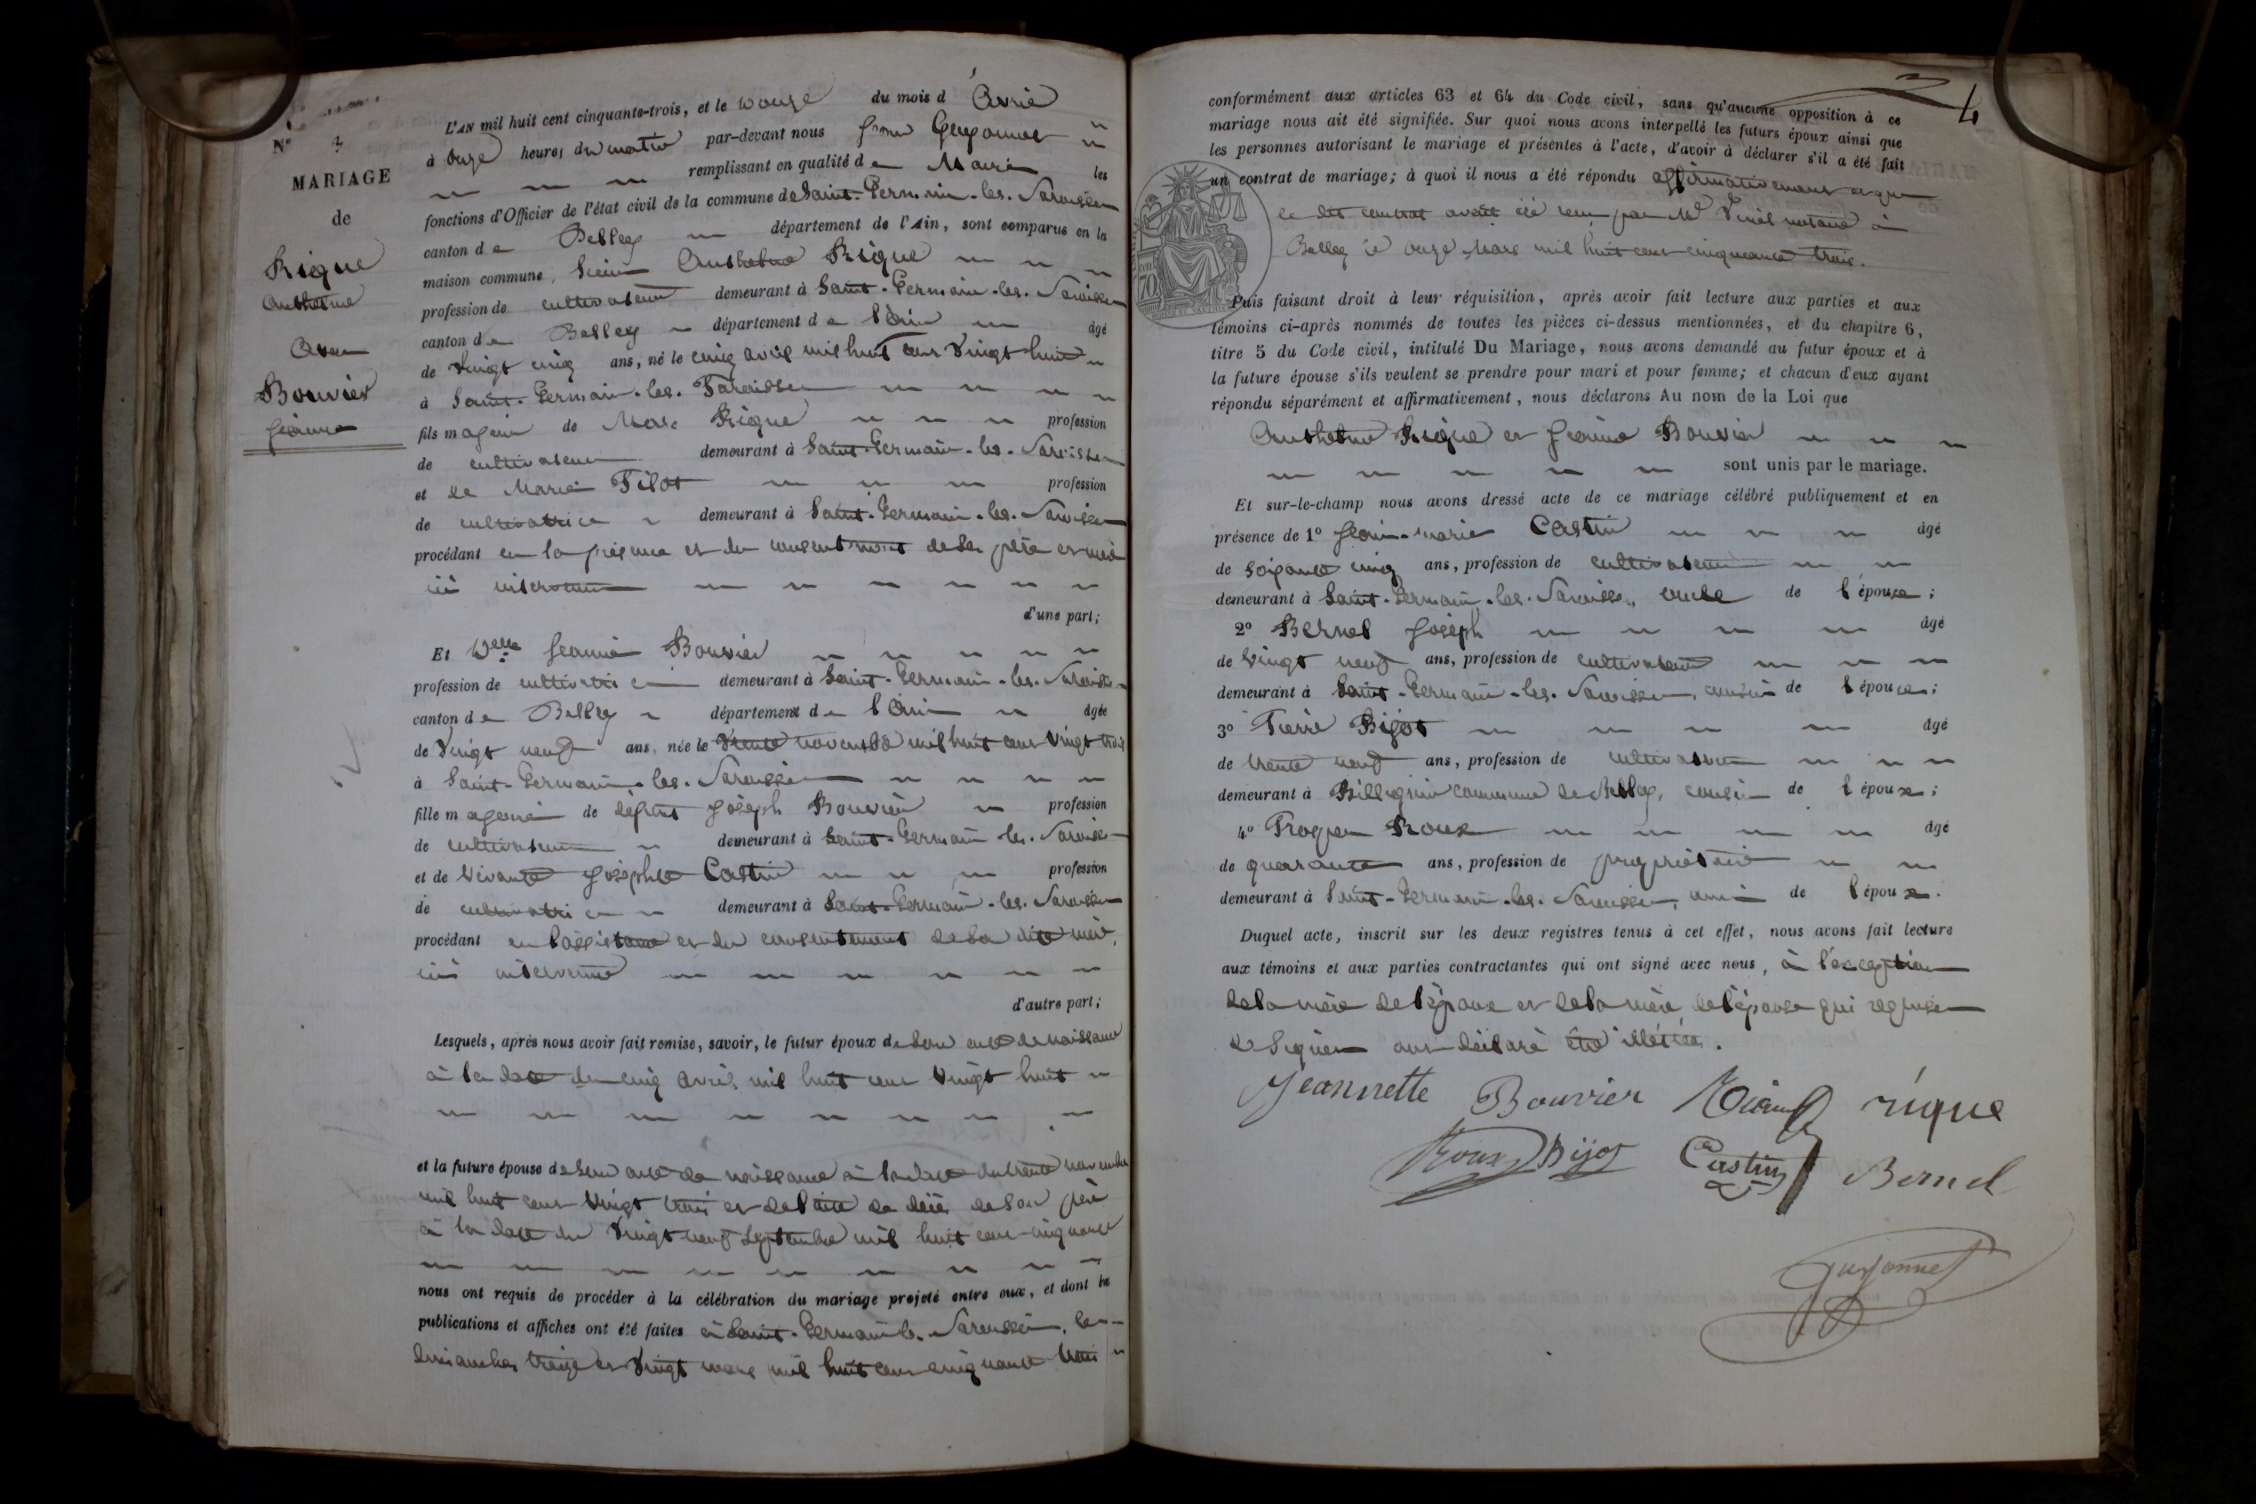 N° 4
MARIAGE
de
Rigue
Anthelme
Avec
Bouvier
Jeanne
L'AN mil huit cent cinquante-trois, et le douze du mois d'Avril
à onze heures du matin par-devant nous Guyonnet
remplissant en qualité de Maire les
fonctions d'Officier de l'état civil de la commune de Saint-Germain-les-Paroisses
canton de Belley département de l'Ain, sont comparus en la
maison commune, Sieur Anthelme Rigue
profession de cultivateur demeurant à Saint-Germain-les-Paroisses
canton de Belley département de l'Ain âgé
de vingt cinq ans, né le cinq avril mil huit cent vingt huit
à Saint-Germain-les-Paroisses
fils majeur de Marc Rigue profession
de cultivateur demeurant à Saint-Germain-les-Paroisses
et de Marie Pilot profession
de cultivatrice demeurant à Saint-Germain-les-Paroisses
procédant en la présence et du consentement de ses père et mère
ici intervenus
d'une part;
Et Delle Jeanne Bouvier
profession de cultivatrice demeurant à Saint-Germain-les-Paroisses
canton de Belley département de l'Ain âgée
de vingt neuf ans, née le trente novembre mil huit cent vingt trois
à Saint-Germain-les-Paroisses
fille majeure de défunt Joseph Bouvier profession
de cultivateur demeurant à Saint-Germain-les-Paroisses
et de vivante Josephte Castin profession
de cultivatrice demeurant à Saint-Germain-les-Paroisses
procédant en l'assistance et du consentement de sa dite mère,
ici intervenue
d'autre part;
Lesquels, après nous avoir fait remise, savoir, le futur époux de son acte de naissance
à la date du cinq avril mil huit cent vingt huit
et la future épouse de son acte de naissance à la date du trente novembre
mil huit cent vingt trois et de l'acte de décès de son père
à la date du vingt neuf septembre mil huit cent cinquante
nous ont requis de procéder à la célébration du mariage projeté entre eux, et dont les
publications et affiches ont été faites à Saint-Germain-les-Paroisses, les
dimanches treize et vingt mars mil huit cent cinquante trois
4
conformément aux articles 63 et 64 du Code civil, sans qu'aucune opposition à ce
mariage nous ait été signifiée. Sur quoi nous avons interpellé les futurs époux ainsi que
les personnes autorisant le mariage et présentes à l'acte, d'avoir à déclarer s'il a été fait
un contrat de mariage; à quoi il nous a été répondu affirmativement et que
le dit contrat avait été reçu par Me notaire à
Belley le onze Mars mil huit cent cinquante trois.
Puis faisant droit à leur réquisition, après avoir fait lecture aux parties et aux
témoins ci-après nommés de toutes les pièces ci-dessus mentionnées, et du chapitre 6,
titre 5 du Code civil, intitulé Du Mariage, nous avons demandé au futur époux et à
la future épouse s'ils veulent se prendre pour mari et pour femme; et chacun d'eux ayant
répondu séparément et affirmativement, nous déclarons Au nom de la Loi que
Anthelme Rigue et Jeanne Bouvier
sont unis par le mariage.
Et sur-le-champ nous avons dressé acte de ce mariage célébré publiquement et en
présence de 1° Jean-marie Castin âgé
de soixante cinq ans, profession de cultivateur
demeurant à Saint-Germain-les-Paroisses, oncle de l'épouse;
2° Bernel Joseph âgé
de vingt neuf ans, profession de cultivateur
demeurant à Saint-Germain-les-Paroisses, cousin de l'épouse;
3° Pierre Bijot âgé
de trente neuf ans, profession de cultivateur
demeurant à Billignin commune de Belley, cousin de l'époux;
4° Roux âgé
de quarante ans, profession de propriétaire
demeurant à Saint-Germain-les-Paroisses, ami de l'époux.
Duquel acte, inscrit sur les deux registres tenus à cet effet, nous avons fait lecture
aux témoins et aux parties contractantes qui ont signé avec nous, à l'exception
de la mère de l'époux et de la mère de l'épouse qui requises
de signer ont déclaré être illétrées.
Jeannette Bouvier rique
Roux Bijot Castin Bernel
Guyonnet